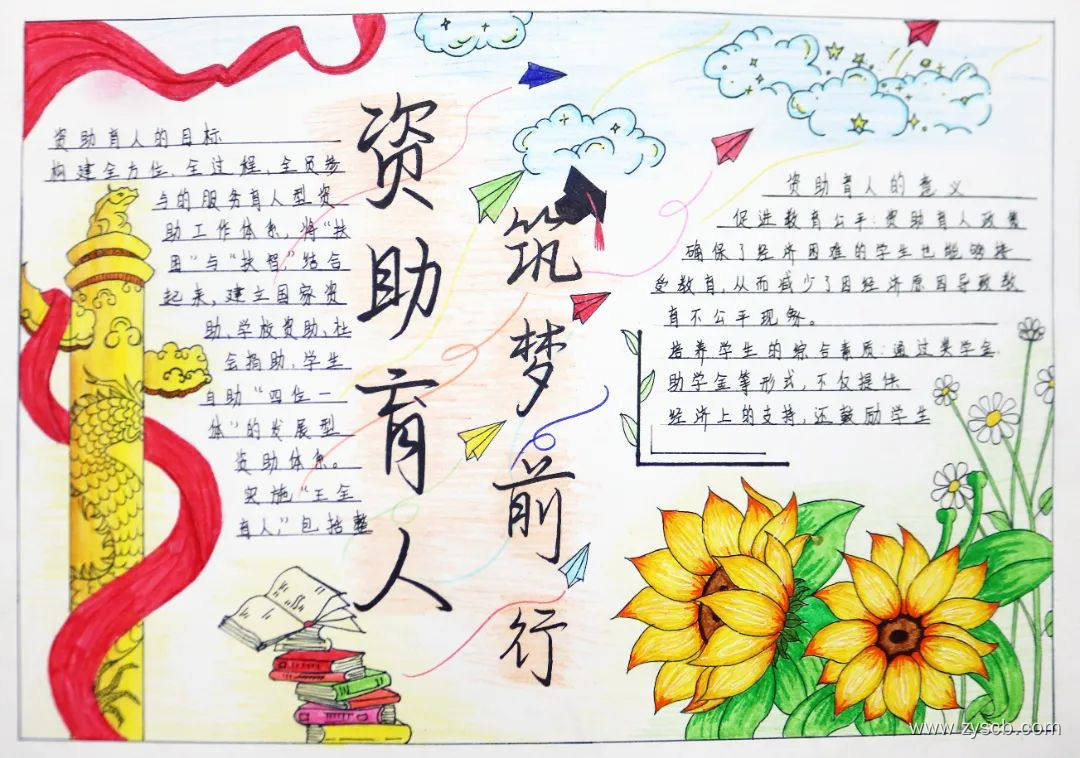 资助育人
筑梦前行
资助育人的目标
构建全方位、全过程、全员参
与的服务育人型资
助工作体系,将“扶
困”与“扶智”结合
起来,建立国家资
助、学校资助、社
会捐助、学生
自助“四位一
体”的发展型
资助体系。
实施“三全
育人”,包括整
资助育人的意义
促进教育公平:资助育人政策
确保了经济困难的学生也能够接
受教育,从而减少了因经济原因导致教
育不公平现象。
培养学生的综合素质:通过奖学金、
助学金等形式,不仅提供
经济上的支持,还鼓励学生
www.zyscb.com